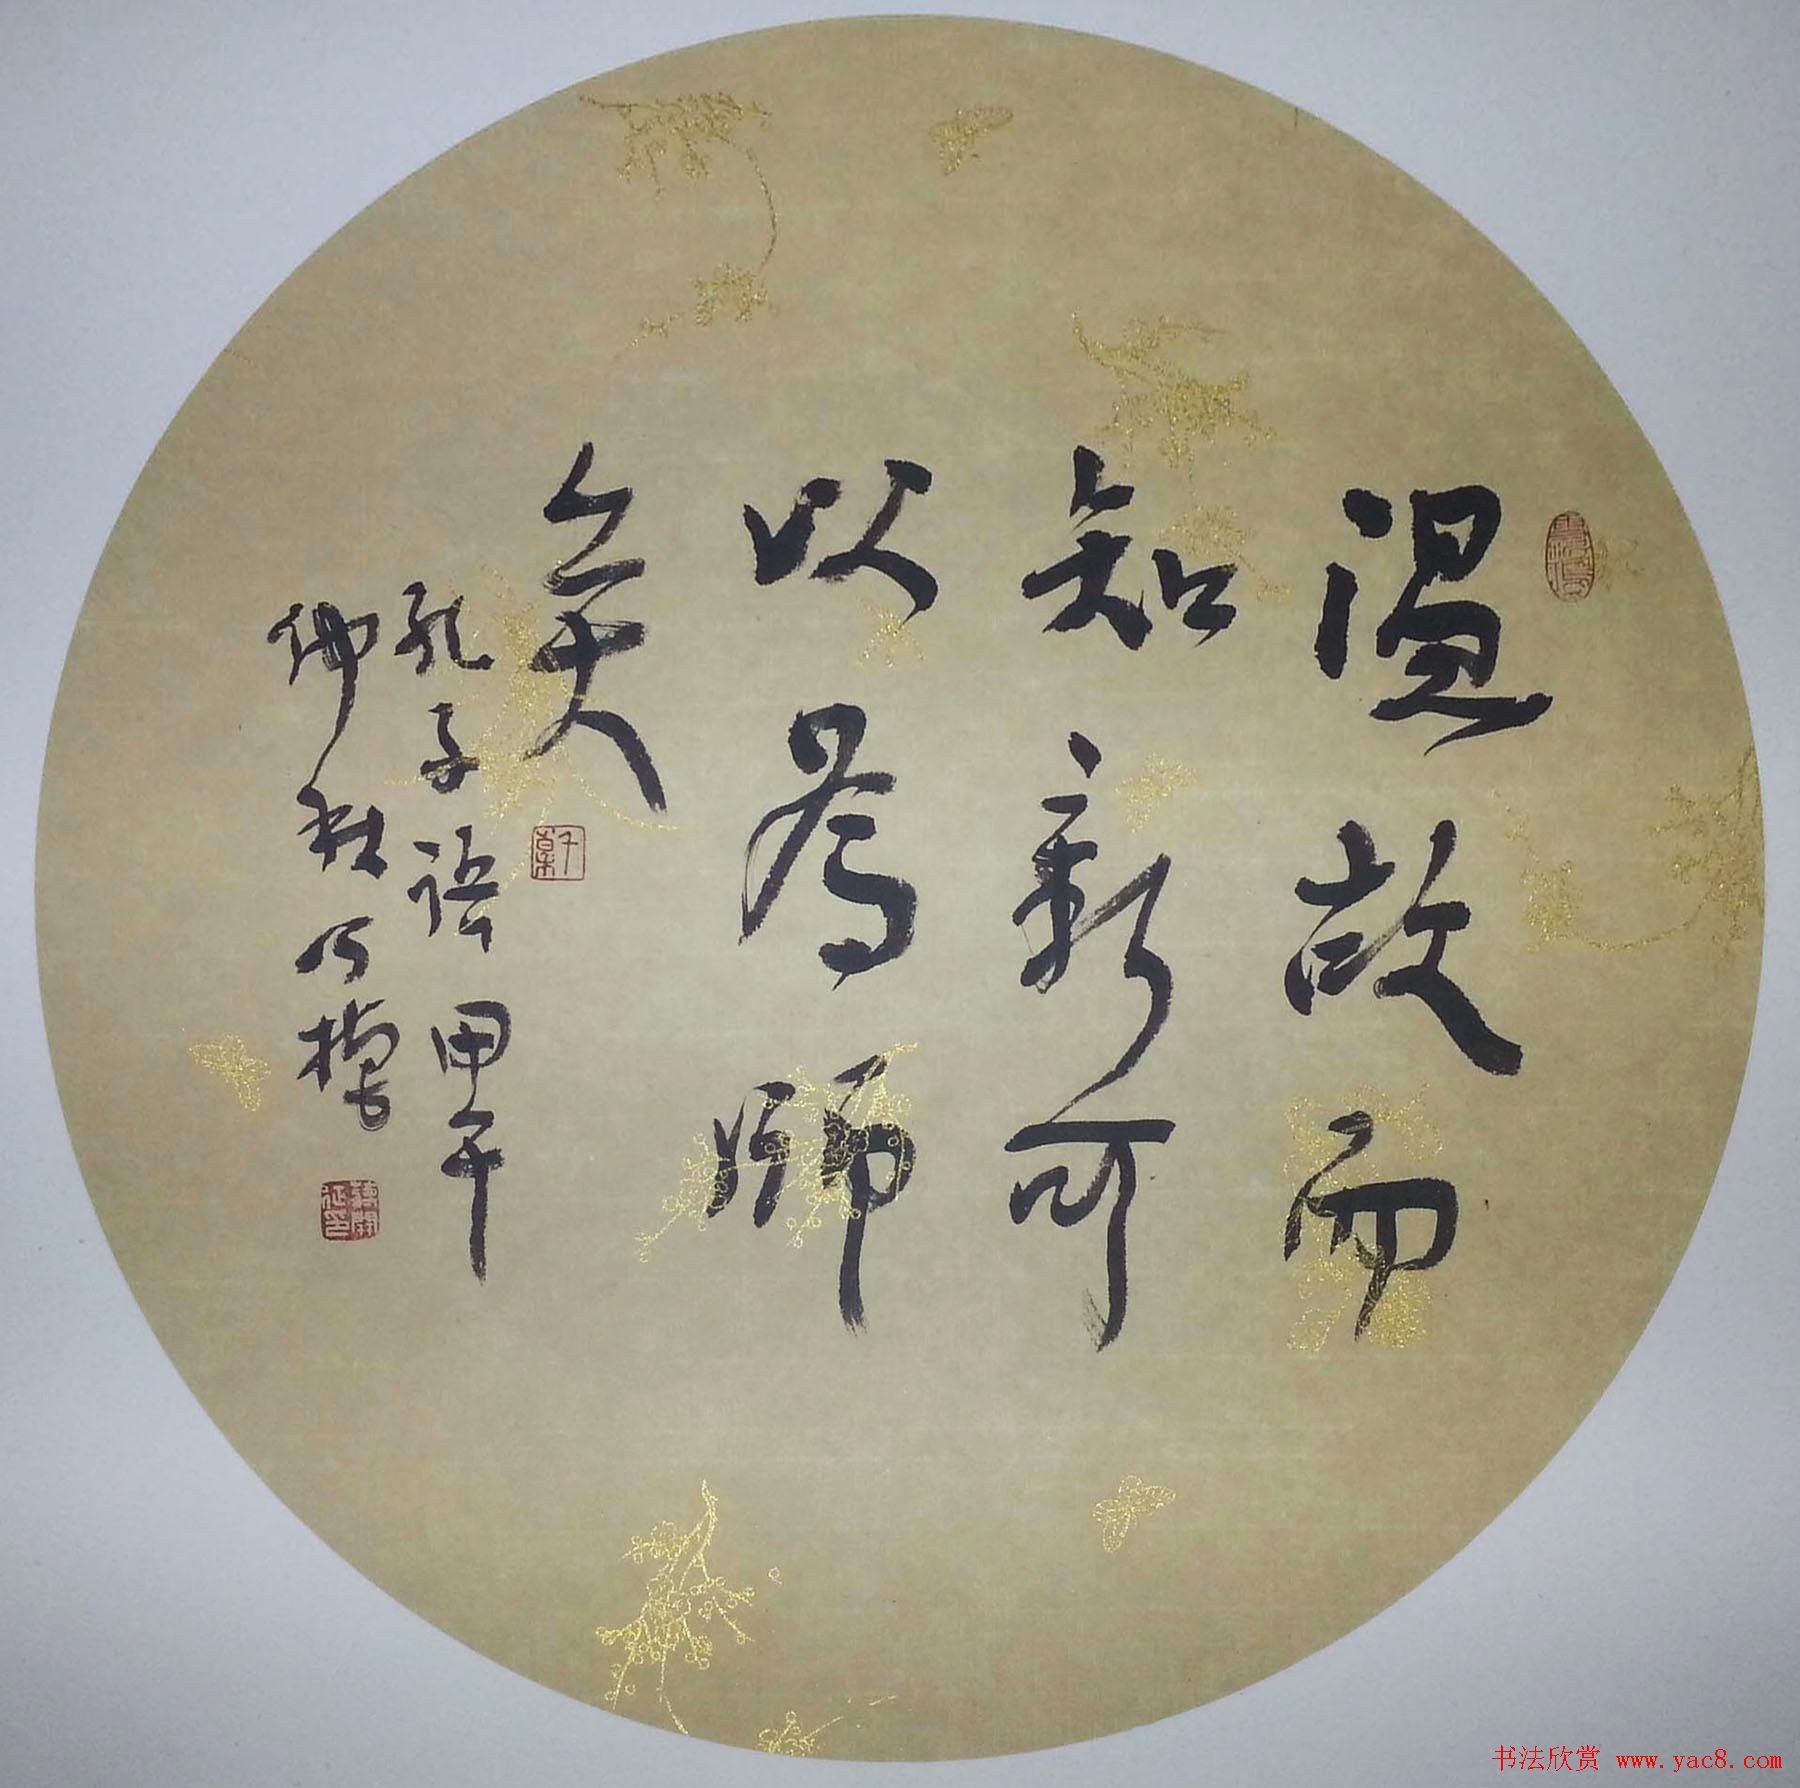 温故而
知新可
以为师
矣
孔子语甲午
仲秋
书法欣赏 www.yac8.com